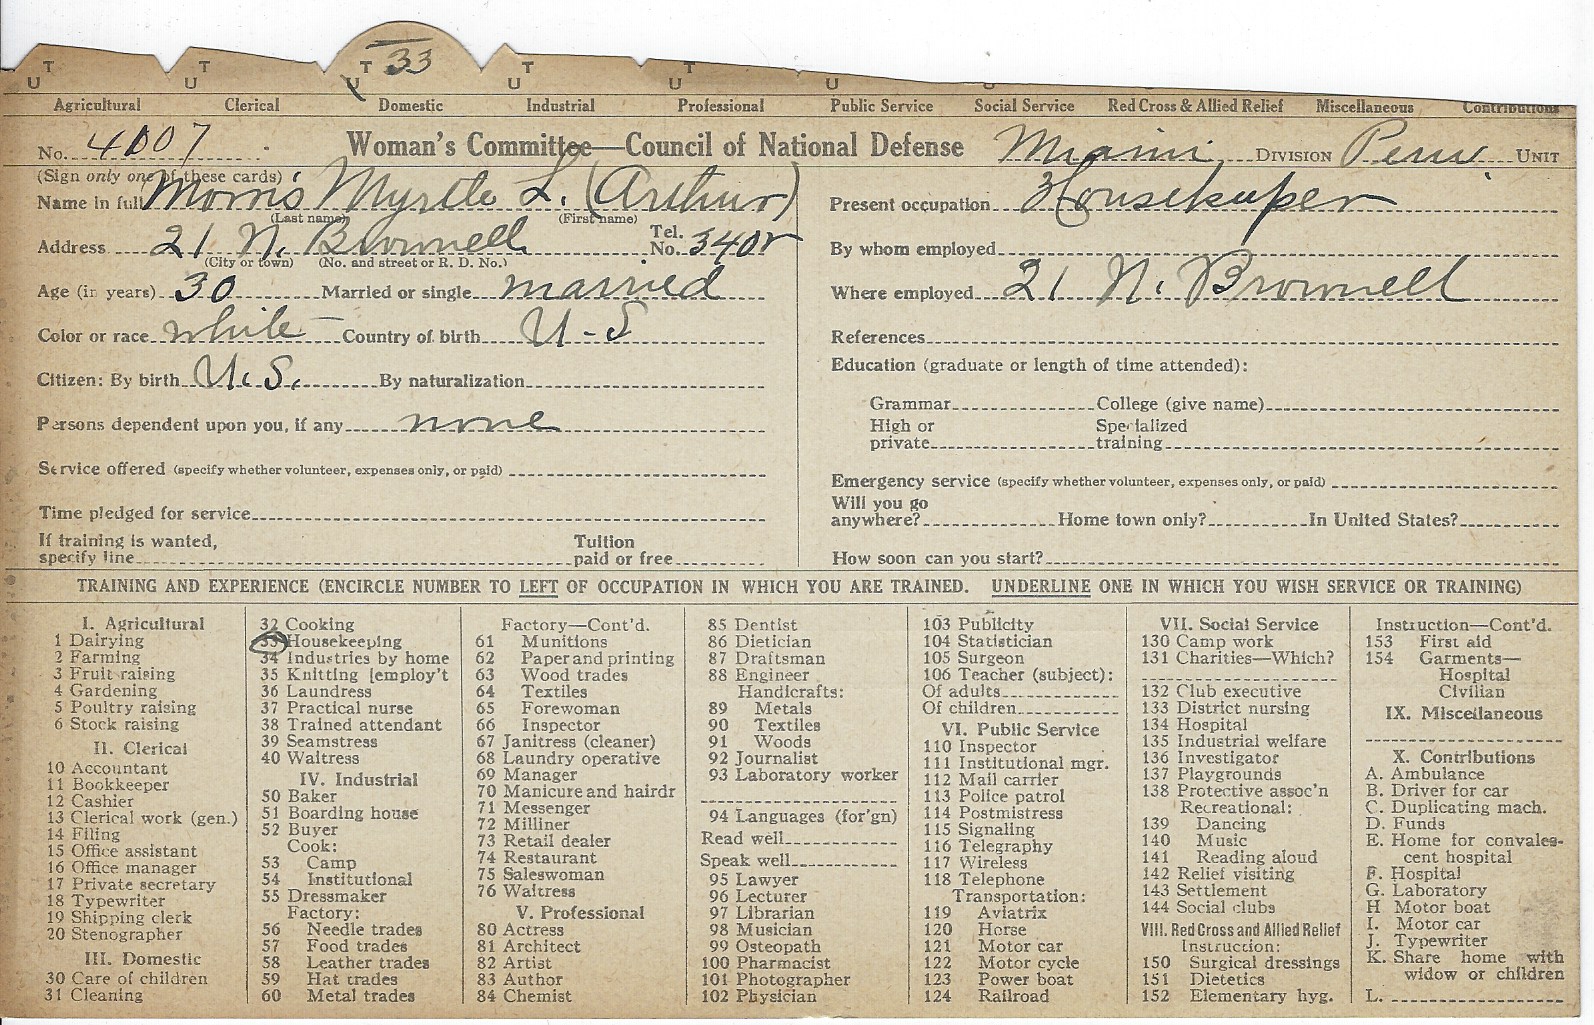 T T T 33 T T
U U U U U U U
Agricultural Clerical Domestic Industrial Professional Public Service Social Service Red Cross & Allied Relief Miscellaneous Contributions
No. 4007 Woman's Committee—Council of National Defense Miami DIVISION Peru UNIT
(Sign only one of these cards)
Name in full Morris Myrtle L. (Arthur)
(Last name) (First name)
Address 21 N. Brownell Tel. No. 3402
(City or town) (No. and street or R. D. No.)
Age (in years) 30 Married or single married
Color or race white Country of birth U-S
Citizen: By birth U.S. By naturalization
Persons dependent upon you, if any none
Service offered (specify whether volunteer, expenses only, or paid)
Time pledged for service
If training is wanted, specify line Tuition paid or free
Present occupation Housekeeper
By whom employed
Where employed 21 N. Brownell
References
Education (graduate or length of time attended):
Grammar College (give name)
High or private Specialized training
Emergency service (specify whether volunteer, expenses only, or paid)
Will you go anywhere? Home town only? In United States?
How soon can you start?
TRAINING AND EXPERIENCE (ENCIRCLE NUMBER TO LEFT OF OCCUPATION IN WHICH YOU ARE TRAINED. UNDERLINE ONE IN WHICH YOU WISH SERVICE OR TRAINING)
I. Agricultural
1 Dairying
2 Farming
3 Fruit raising
4 Gardening
5 Poultry raising
6 Stock raising
II. Clerical
10 Accountant
11 Bookkeeper
12 Cashier
13 Clerical work (gen.)
14 Filing
15 Office assistant
16 Office manager
17 Private secretary
18 Typewriter
19 Shipping clerk
20 Stenographer
III. Domestic
30 Care of children
31 Cleaning
32 Cooking
33 Housekeeping
34 Industries by home
35 Knitting [employ't
36 Laundress
37 Practical nurse
38 Trained attendant
39 Seamstress
40 Waitress
IV. Industrial
50 Baker
51 Boarding house
52 Buyer
Cook:
53 Camp
54 Institutional
55 Dressmaker
Factory:
56 Needle trades
57 Food trades
58 Leather trades
59 Hat trades
60 Metal trades
Factory—Cont'd.
61 Munitions
62 Paper and printing
63 Wood trades
64 Textiles
65 Forewoman
66 Inspector
67 Janitress (cleaner)
68 Laundry operative
69 Manager
70 Manicure and hairdr
71 Messenger
72 Milliner
73 Retail dealer
74 Restaurant
75 Saleswoman
76 Waitress
V. Professional
80 Actress
81 Architect
82 Artist
83 Author
84 Chemist
85 Dentist
86 Dietician
87 Draftsman
88 Engineer
Handicrafts:
89 Metals
90 Textiles
91 Woods
92 Journalist
93 Laboratory worker
94 Languages (for'gn)
Read well
Speak well
95 Lawyer
96 Lecturer
97 Librarian
98 Musician
99 Osteopath
100 Pharmacist
101 Photographer
102 Physician
103 Publicity
104 Statistician
105 Surgeon
106 Teacher (subject):
Of adults
Of children
VI. Public Service
110 Inspector
111 Institutional mgr.
112 Mail carrier
113 Police patrol
114 Postmistress
115 Signaling
116 Telegraphy
117 Wireless
118 Telephone
Transportation:
119 Aviatrix
120 Horse
121 Motor car
122 Motor cycle
123 Power boat
124 Railroad
VII. Social Service
130 Camp work
131 Charities—Which?
132 Club executive
133 District nursing
134 Hospital
135 Industrial welfare
136 Investigator
137 Playgrounds
138 Protective assoc'n
Recreational:
139 Dancing
140 Music
141 Reading aloud
142 Relief visiting
143 Settlement
144 Social clubs
VIII. Red Cross and Allied Relief
Instruction:
150 Surgical dressings
151 Dietetics
152 Elementary hyg.
Instruction—Cont'd.
153 First aid
154 Garments—
Hospital
Civilian
IX. Miscellaneous
X. Contributions
A. Ambulance
B. Driver for car
C. Duplicating mach.
D. Funds
E. Home for convales-
cent hospital
F. Hospital
G. Laboratory
H Motor boat
I. Motor car
J. Typewriter
K. Share home with
widow or children
L.